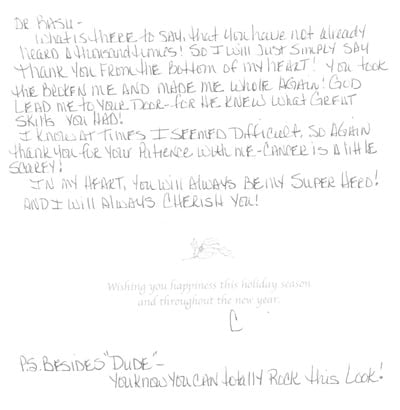 DR BASU-
What is there to say, that you have not already
heard a thousand times! So I will just simply say
thank you from the bottom of my heart! You took
the broken me and made me whole again! God
lead me to your door - for he knew what great
skills you had!
I know at times I seemed difficult, so again
thank you for your patience with me - cancer is a little
scarey!
In my heart, you will always be my super hero!
And I will always cherish you!
Wishing you happiness this holiday season
and throughout the new year.
C
P.S. Besides "Dude" -
You know you can totally rock this look!